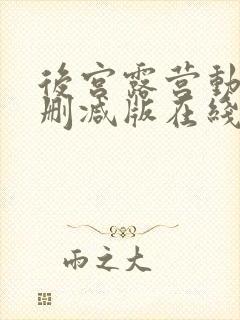 後宫露营動
删减版在綫
雨之大